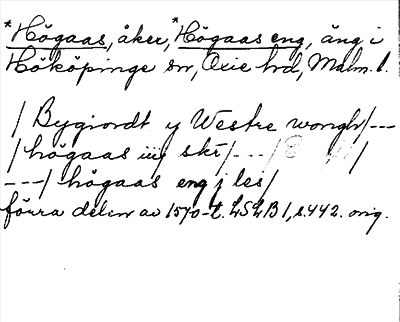 *Högaas, åker, *Högaas eng, äng i
Hököpinge sn, Oxie hd, Malm. l.
/ Bygiordt y Westre wongh/---
/ högaas iiij skr/---/ /
---/ högaas eng j les/
förra delen av 1570-t. LSLB I, s. 442. orig.